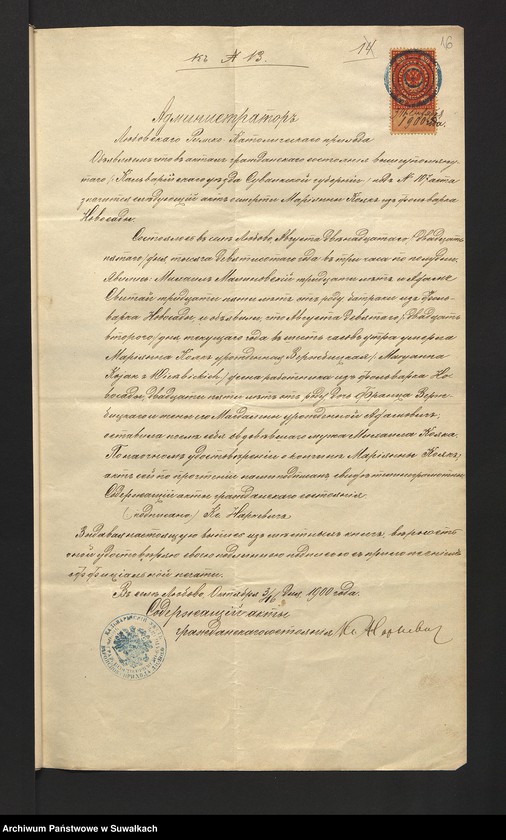 14 16
къ А 13.
3 Октября
1900 года.
Администраторъ
Любовскаго Римско-Католическаго прихода
Объявляетъ что въ актахъ гражданскаго состоянія вышеупомяну-
таго (Кальварійскаго уѣзда Сувалкской губерніи) подъ № акта
значится слѣдующій актъ смерти Маріянны Колкъ изъ фольварка
Новосады.
Состоялось въ селѣ Любовѣ Августа двѣнадцатаго (двадцать
пятаго) дня тысяча девятисотаго года въ три часа по полудни.
Явились: Михаилъ Малиновскій тридцати лѣтъ и Адамъ
тридцати пяти лѣтъ отъ роду батраки изъ фоль-
варка Новосады, и объявили, что Августа девятаго (двадцать
второго) дня текущаго года въ шесть часовъ утра умерла
Маріянна Колкъ урожденная Вержбицкая (Maryanna
Kojak z Wierzbickich) жена работника изъ фольварка Но-
восады, двадцати пяти лѣтъ отъ роду, дочь Франца Верж-
бицкаго и жены его Магдалины урожденной Адамовичъ,
оставила послѣ себя овдовѣвшаго мужа Михаила Колка.
По наочномъ удостовѣреніи о кончинѣ Маріянны Колкъ,
актъ сей по прочтеніи нами подписанъ, свидѣтели неграмотны.
Содержащій акты гражданскаго состоянія
(подписано) Кс. Наркевичъ
Выдавая настоящую выпись изъ метричныхъ книгъ, вѣрность
оной удостовѣряю своею подписью съ приложеніемъ
оффиціальной печати.
Въ селѣ Любово, Октября 3/16 дня 1900 года.
Содержащій акты
гражданскаго состоянія Кс. Наркевичъ
Archiwum Państwowe w Suwałkach